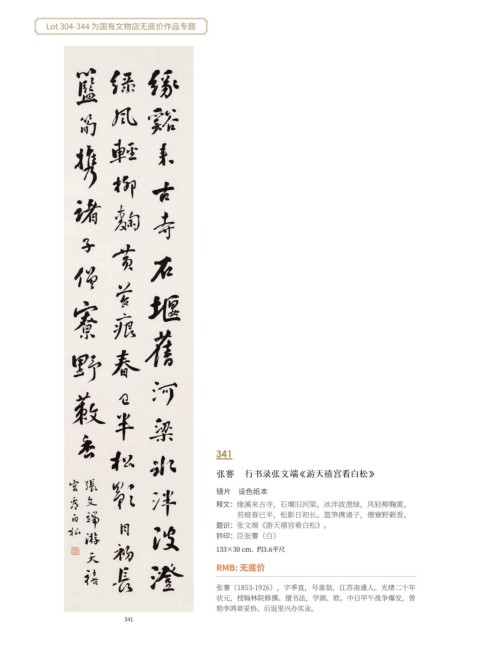 Lot 304-344 为国有文物店无底价作品专题
缘谿来古寺石堰旧河梁冰泮波澄
绿风轻柳麴黄苔痕春已半松影日初长
篮笋携诸子僧寮野蔌香
张文端游天禧
宫看白松
341
341
张謇 行书录张文端《游天禧宫看白松》
镜片 设色纸本
释文：缘溪来古寺，石堰旧河梁。冰泮波澄绿，风轻柳麴黄。
苔痕春已半，松影日初长。篮笋携诸子，僧寮野蔌香。
题识：张文端《游天禧宫看白松》。
钤印：臣张謇（白）
133×30 cm. 约3.6平尺
RMB: 无底价
张謇（1853-1926），字季直，号啬翁，江苏南通人。光绪二十年
状元，授翰林院修撰。擅书法，学颜、欧。中日甲午战争爆发，曾
劾李鸿章妥协。后返里兴办实业。